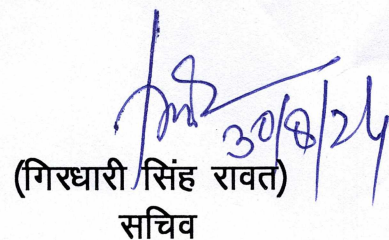 30/8/24
(गिरधारी सिंह रावत)
सचिव